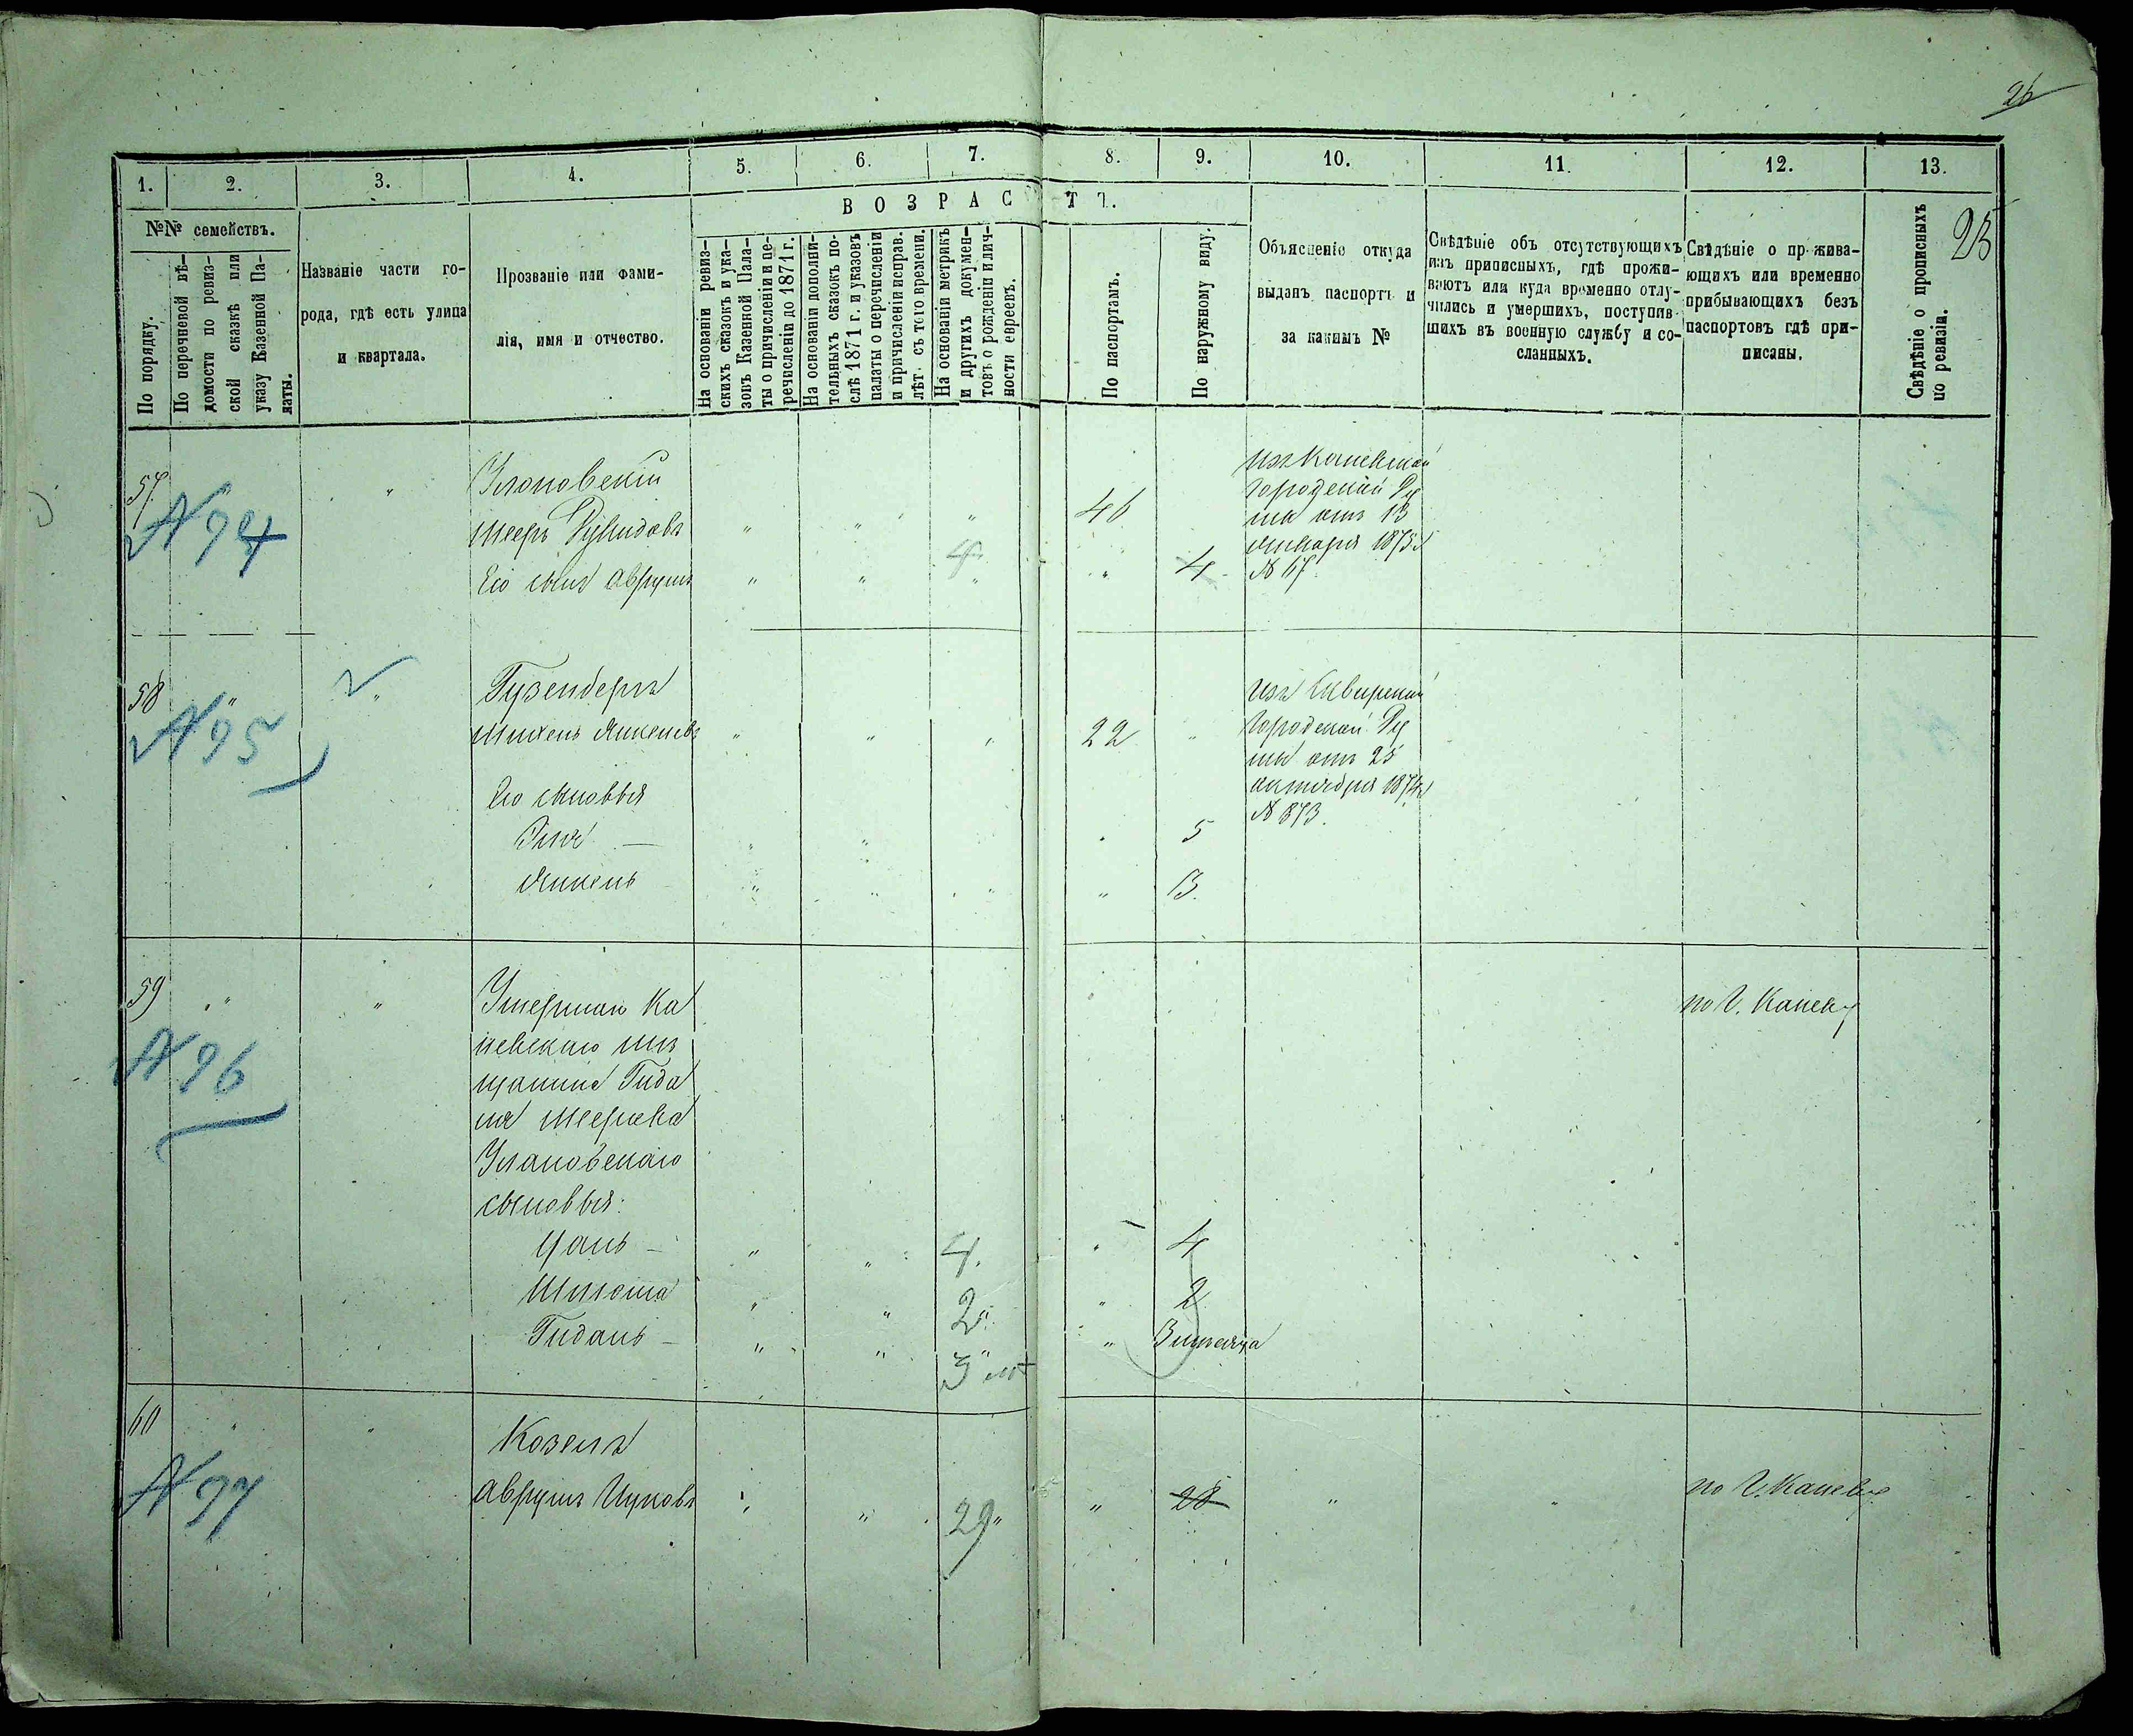 26
1. 2. 3. 4. 5. 6. 7. 8. 9. 10. 11. 12. 13.
ВОЗРАСТЪ.
25
№№ семействъ.
По порядку.
По перечневой вѣ-
домости по ревиз-
ской сказкѣ или
указу Казенной Па-
латы.
Названіе части го-
рода, гдѣ есть улица
и квартала.
Прозваніе или фами-
лія, имя и отчество.
На основаніи ревиз-
скихъ сказокъ и ука-
зовъ Казенной Пала-
ты о причисленіи и пе-
речисленіи до 1871 г.
На основаніи дополни-
тельныхъ сказокъ по-
слѣ 1871 г. и указовъ
палаты о перечисленіи
и причисленіи исправ.
лѣт. съ того времени.
На основаніи метрикъ
и другихъ докумен-
товъ о рожденіи и лич-
ности евреевъ.
По паспортамъ.
По наружному виду.
Объясненіе откуда
выданъ паспортъ и
за какимъ №
Свѣдѣніе объ отсутствующихъ
изъ приписныхъ, гдѣ прожи-
ваютъ или куда временно отлу-
чились и умершихъ, поступив-
шихъ въ военную службу и со-
сланныхъ.
Свѣдѣніе о прожива-
ющихъ или временно
прибывающихъ безъ
паспортовъ гдѣ при-
писаны.
Свѣдѣніе о прописныхъ
по ревизіи.
57
№ 94
"
Улановскій
изъ Каневской
Городской Ду
Мееръ Дувидовъ " " " 46
мы отъ 13
Января 1875 г
Его сынъ Аврумъ " " " " 4
№ 67
58 " "
№ 95
Гузенбергъ
изъ Сквирской
Михель Янкелевъ " " " 22 "
Городской Ду
мы отъ 25
Его сыновья
октября 1874 г
№ 873.
Эля — " " " 5
Янкель " " " " 3.
59 " "
№ 96
Умершаго Ка
по Г. Каневу
невскаго мѣ
щанина Гида
ля Меерова
Улановскаго
сыновья:
— " " 4. " 4
Шлема " " 2 " 2
Гидаль — " " 3 " 3 мѣсяца
60 " "
№ 97
Козелъ
Аврумъ Ицковъ " " 29 " 28 " "
по Г. Каневу